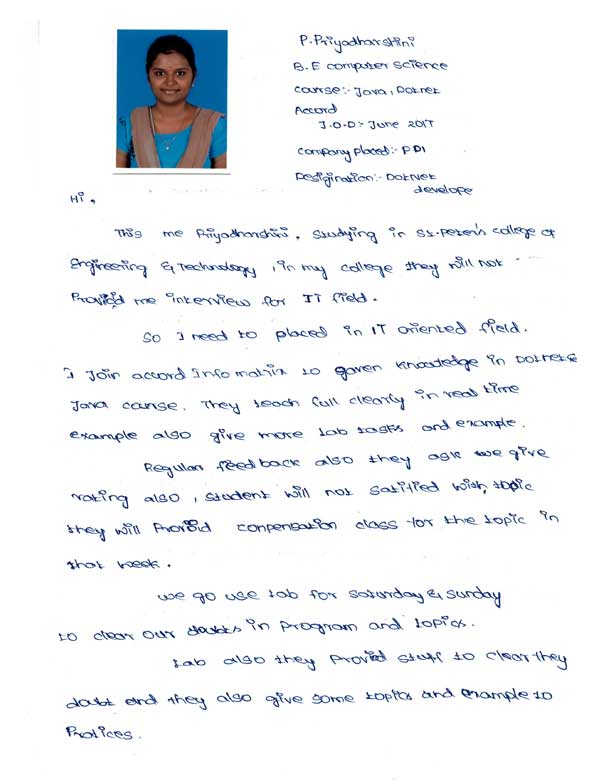 P.Priyadharshini
B.E computer science
course:- Java, Dotnet
Accord
J.O.D:- June 2017
company placed:- PDI
Desigination:- DotNet
develope
Hi,
This me Priyadharshini, studying in St.Peter's college of
Engineering & Technology, in my college they will not
Provied me interview for IT field.
So I need to placed in IT oriented field.
I Join accord Info matrix to gaven knowledge in Dotnet &
Java course. They teach full clearly in real time
example also give more lab tasks and example.
Regular feedback also they ask we give
rating also, student will not satified with topic
they will Provid conpensation class for the topic in
that week.
we go use lab for saturday & sunday
to clear our doubts in program and topics.
Lab also they provied stuff to clear they
doubt and they also give some topics and example to
Pratices.